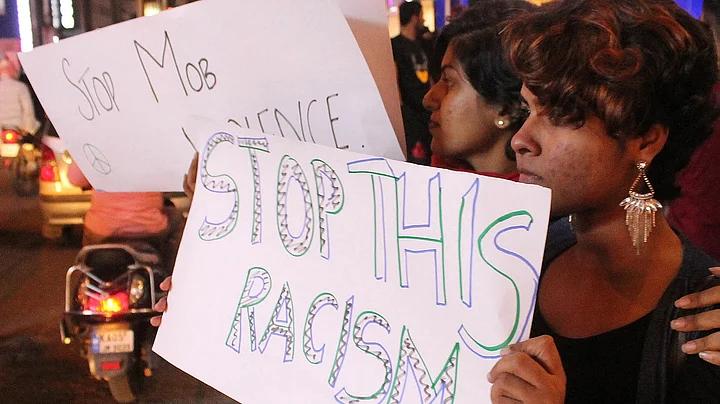 STOP MOB
VIOLENCE.
STOP THIS
RACISM